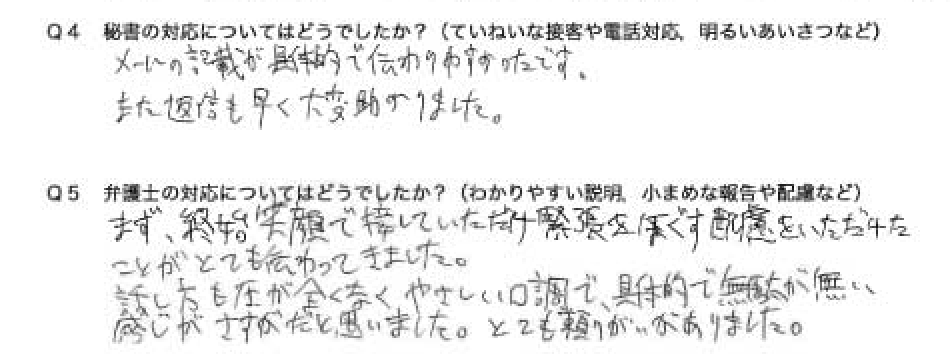 Q4 秘書の対応についてはどうでしたか？（ていねいな接客や電話対応，明るいあいさつなど）
メールの記載が具体的で伝わりやすかったです。
また返信も早く大変助かりました。
Q5 弁護士の対応についてはどうでしたか？（わかりやすい説明，小まめな報告や配慮など）
まず、終始笑顔で接していただけ緊張をほぐす配慮をいただけた
ことがとても伝わってきました。
話し方も圧が全くなくやさしい口調で、具体的で無駄が無い
感じがさすがだと思いました。とても頼りがいがありました。